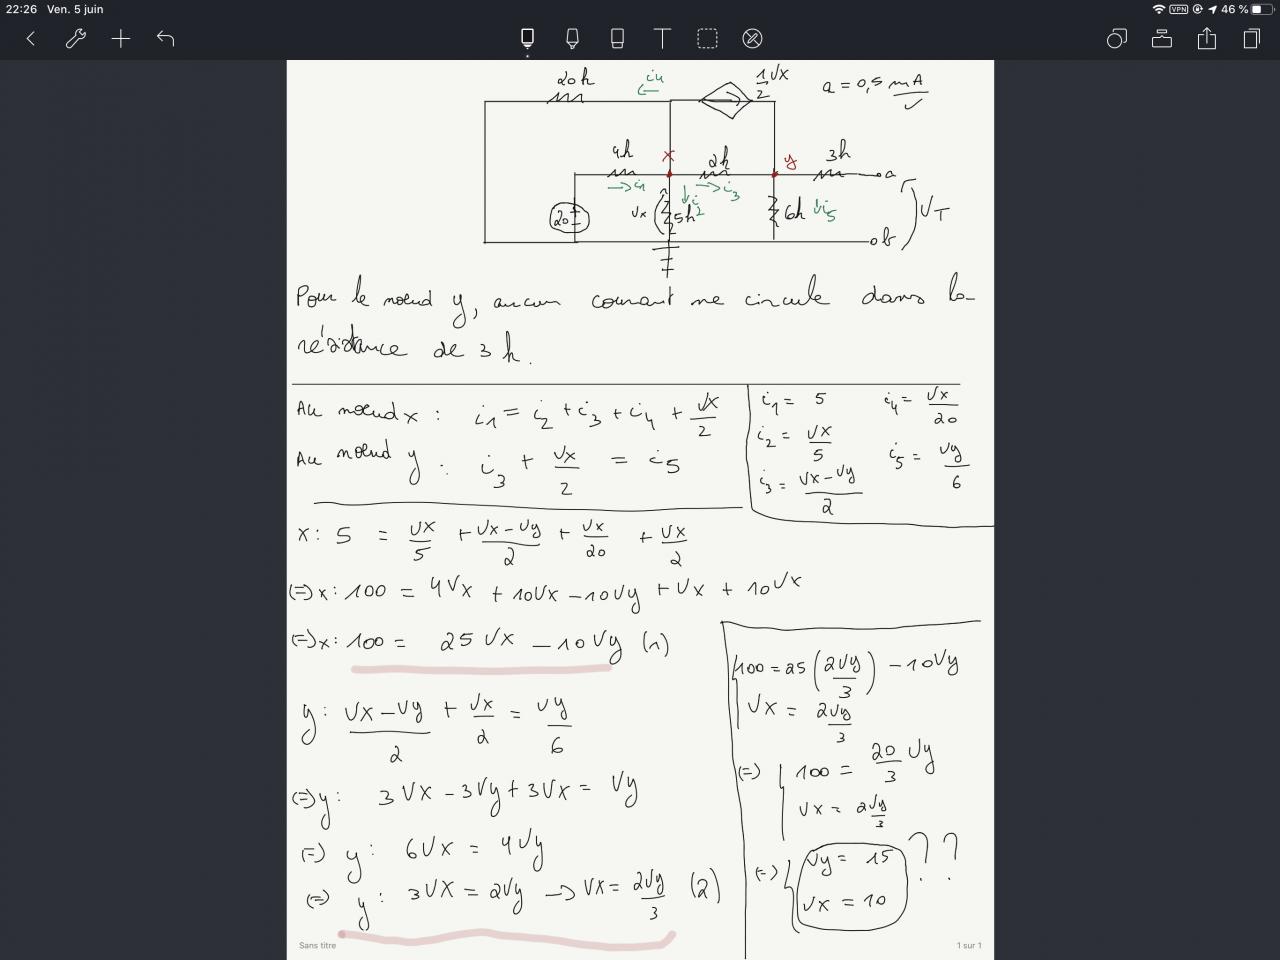 22:26 Ven. 5 juin
VPN 46 %
20k
i4
1/2 Vx
a = 0,5 mA
4k
x
2k
y
3k
a
i1
i2
i3
20
Vx
5k
6k
i5
VT
b
Pour le noeud y, aucun courant ne circule dans la
résistance de 3 k.
Au noeud x : i1 = i2 + i3 + i4 + Vx/2
Au noeud y : i3 + Vx/2 = i5
i1 = 5
i4 = Vx/20
i2 = Vx/5
i5 = Vy/6
i3 = (Vx-Vy)/2
x : 5 = Vx/5 + (Vx-Vy)/2 + Vx/20 + Vx/2
(=) x : 100 = 4Vx + 10Vx - 10Vy + Vx + 10Vx
(=) x : 100 = 25Vx - 10Vy (1)
y : (Vx-Vy)/2 + Vx/2 = Vy/6
(=) y : 3Vx - 3Vy + 3Vx = Vy
(=) y : 6Vx = 4Vy
(=) y : 3Vx = 2Vy -> Vx = 2Vy/3 (2)
100 = 25 (2Vy/3) - 10Vy
Vx = 2Vy/3
(=) 100 = 20/3 Vy
Vx = 2Vy/3
(=) Vy = 15 ??
Vx = 10
Sans titre
1 sur 1